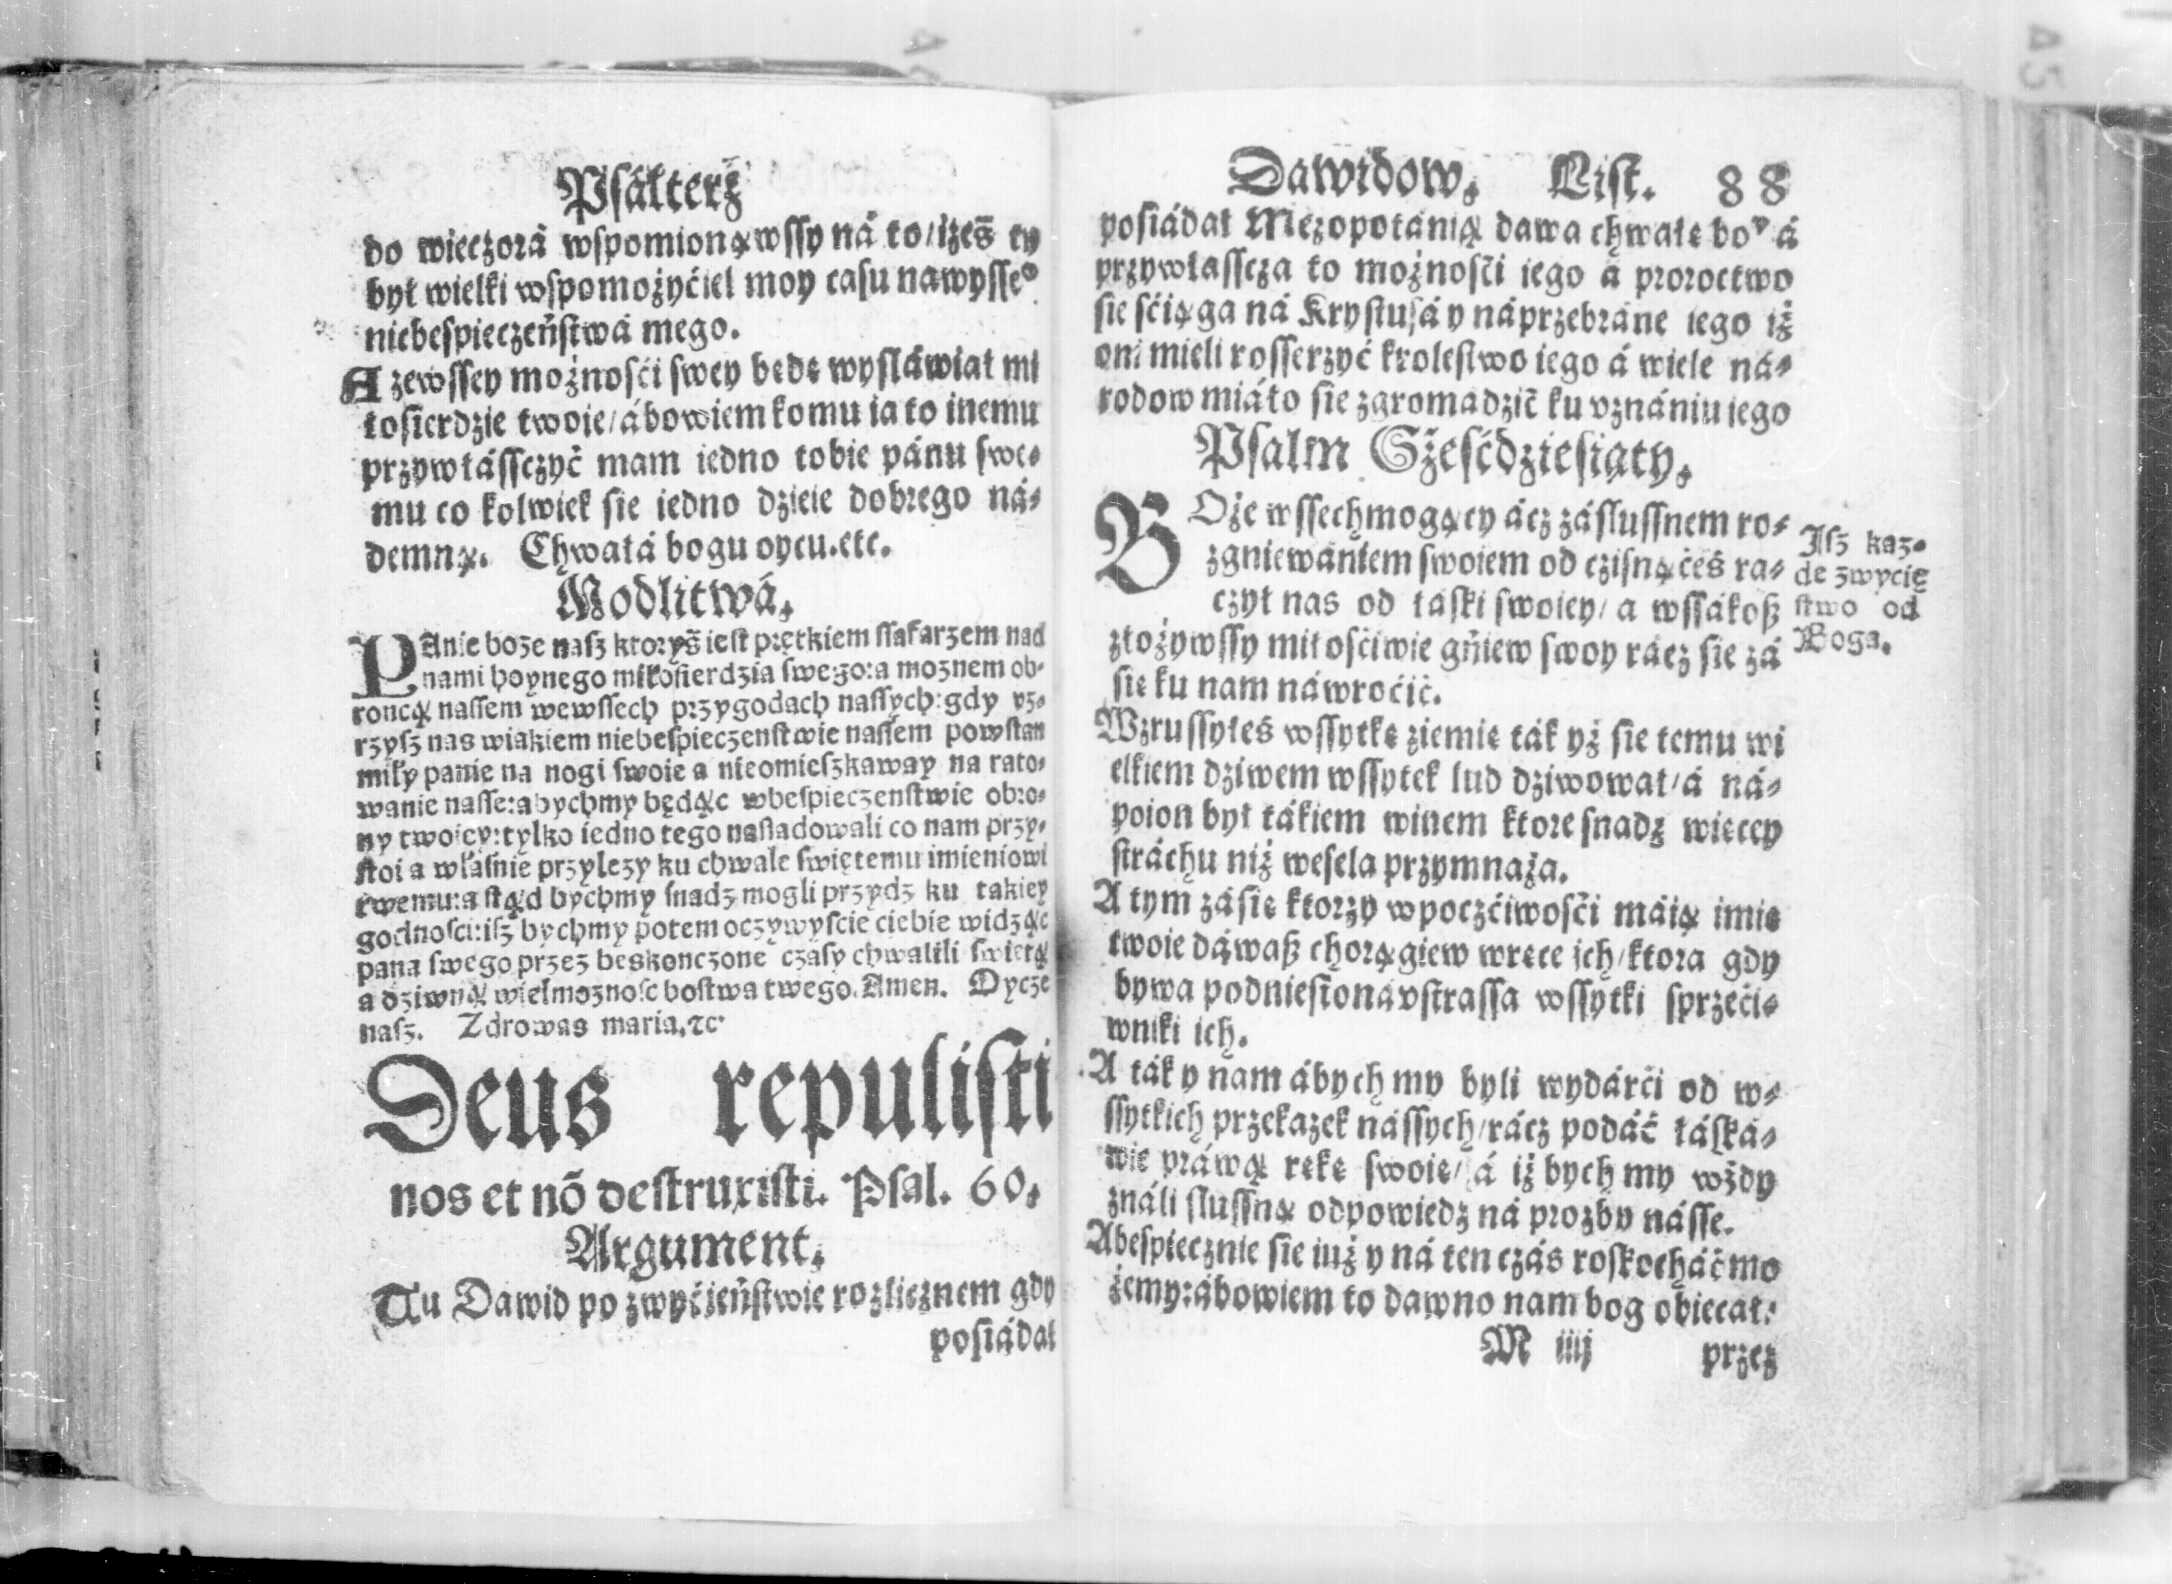 Psałterz
do wieczorá wspomionąwssy ná to/iżeś ty
był wielki wspomożyćiel moy casu nawysse°
niebespieczeństwá mego.
A zewssey możnośći swey bedę wysláwiał mi
łosierdzie twoie/ábowiem komu ia to inemu
przywłássczyć mam iedno tobie pánu swe⸗
mu co kolwiek sie iedno dzieie dobrego ná⸗
demną. Chwałá bogu oycu.etc.
Modlitwá.
PAnie boze nasz ktoryś iest prętkiem ssafarzem nad
nami hoynego miłosierdzia swego:a moznem ob⸗
roncą nassem wewssech przygodach nassych:gdy vz⸗
rzysz nas wiakiem niebespieczenstwie nassem powstan
miły panie na nogi swoie a nieomieszkaway na rato⸗
wanie nasse:abychmy będąc wbespieczenstwie obro⸗
ny twoiey:tylko iedno tego nasladowali co nam przy⸗
stoi a własnie przylezy ku chwale swiętemu imieniowi
twemu:a stąd bychmy snadz mogli przydz ku takiey
godnosci:isz bychmy potem oczywyscie ciebie widząc
pana swego przez beskonczone czasy chwalili swietą
a dziwną wielmoznosc bostwa twego.Amen. Oycze
nasz. Zdrowas maria,⁊c·
Deus repulisti
nos et nō destruxisti. Psal. 60.
Argument.
Tu Dawid po zwyćieństwie rozlicznem gdy
posiádał
Dawidow. List. 88
posiádał Mezopotánią dawa chwałę boᵛ á
przywłasscza to możnośći iego á proroctwo
sie śćiąga ná Krystusá y náprzebráne iego iż
oni mieli rosserzyć krolestwo iego á wiele ná⸗
rodow miáto sie zgromadzić ku vznániu iego
Psalm Sześćdziesiąty.
BOże wssechmogący ácz záslussnem ro⸗
zgniewániem swoiem od czisnąćeś ra⸗
czył nas od łaski swoiey/ a wssákoß
złożywssy miłośćiwie gniew swoy rácz sie zá
się ku nam náwroćić.
Wzrussyłeś wssytkę ziemię ták yż sie temu wi
elkiem dziwem wssytek lud dziwował/á ná⸗
poion był tákiem winem ktore snadz więcey
stráchu niż wesela przymnaża.
A tym zásię ktorzy wpoczćiwośći máią imię
twoie dáwaß chorągiew wręce ich/ktora gdy
bywa podniesioná vstrassa wssytki sprzeći⸗
wniki ich.
A ták y nam ábychmy byli wydárći od w⸗
ssytkich przekazek nássych/rácz podáć łáská⸗
wie práwą rękę swoię/ á iż bychmy wżdy
ználi slussną odpowiedz ná prozby násse.
Abespiecznie sie iuż y ná ten czás roskocháć mo
żemy:ábowiem to dawno nam bog obiecał:
M iiij przez
Isz kaz⸗
de zwycię
stwo od
Boga.